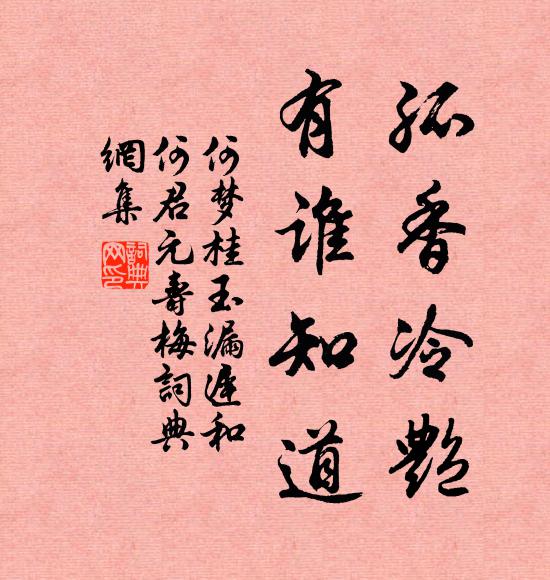 孤香冷艷
有誰知道
何梦桂玉漏遲和
何君元壽梅詞典
網集
詞典
网印